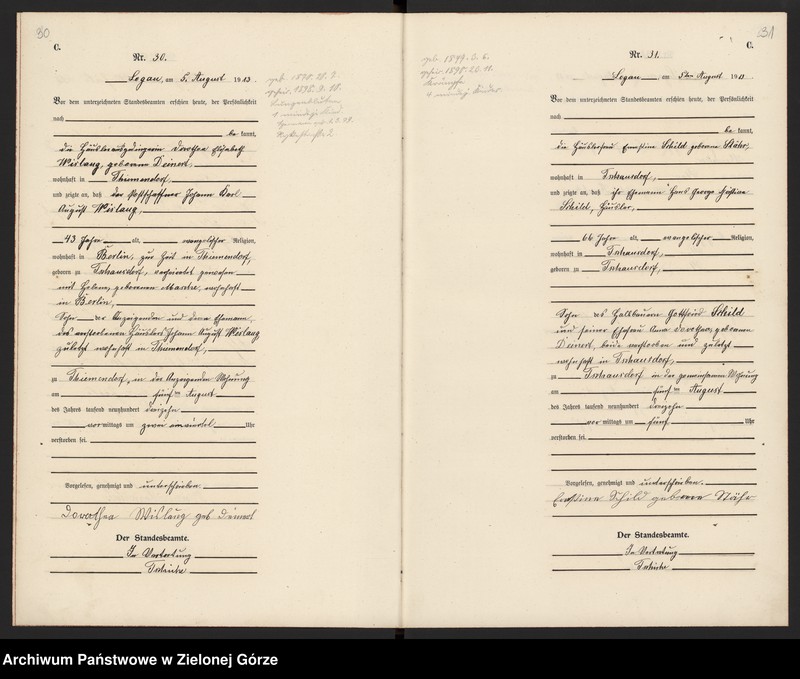 30
C.
Nr. 30.
Legau, am 5. August 1913.
Vor dem unterzeichneten Standesbeamten erschien heute, der Persönlichkeit
nach
be kannt,
die Häuslerauszüglerin Dorothea Elisabeth
Wislaug, geborenen Deinert,
wohnhaft in Thiemendorf,
und zeigte an, daß der Postschaffner Johann Karl
August Wislaug,
43 Jahre alt, evangelischer Religion,
wohnhaft in Berlin, zur Zeit in Thiemendorf,
geboren zu Tschausdorf, verheiratet gewesen
mit Helene, geborenen, wohnhaft
in Berlin,
Sohn der Anzeigenden und deren Ehemann,
des verstorbenen Häuslers Johann August Wislaug
zuletzt wohnhaft in Thiemendorf,
zu Thiemendorf, in der Anzeigenden Wohnung
am fünften August
des Jahres tausend neunhundert dreizehn
vor mittags um zwei einviertel Uhr
verstorben sei.
Vorgelesen, genehmigt und unterschrieben.
Dorothea Wislaug geb Deinert
Der Standesbeamte.
In Vertretung
31
C.
Nr. 31.
Legau, am 5ten August 1913.
Vor dem unterzeichneten Standesbeamten erschien heute, der Persönlichkeit
nach
be kannt,
die Häuslerfrau Ernstine Schild geborene
wohnhaft in Tschausdorf,
und zeigte an, daß ihr Ehemann Hans George
Schild, Häusler,
66 Jahre alt, evangelischer Religion,
wohnhaft in Tschausdorf,
geboren zu Tschausdorf,
Sohn des Halbbauern Gottfried Schild
und seiner Ehefrau Anna Dorothea, geborenen
Deinert, beide verstorben und zuletzt
wohnhaft in Tschausdorf,
zu Tschausdorf in der gemeinsamen Wohnung
am fünften August
des Jahres tausend neunhundert dreizehn
vor mittags um fünf Uhr
verstorben sei.
Vorgelesen, genehmigt und unterschrieben.
Ernstine Schild geborene
Der Standesbeamte.
In Vertretung
Archiwum Państwowe w Zielonej Górze